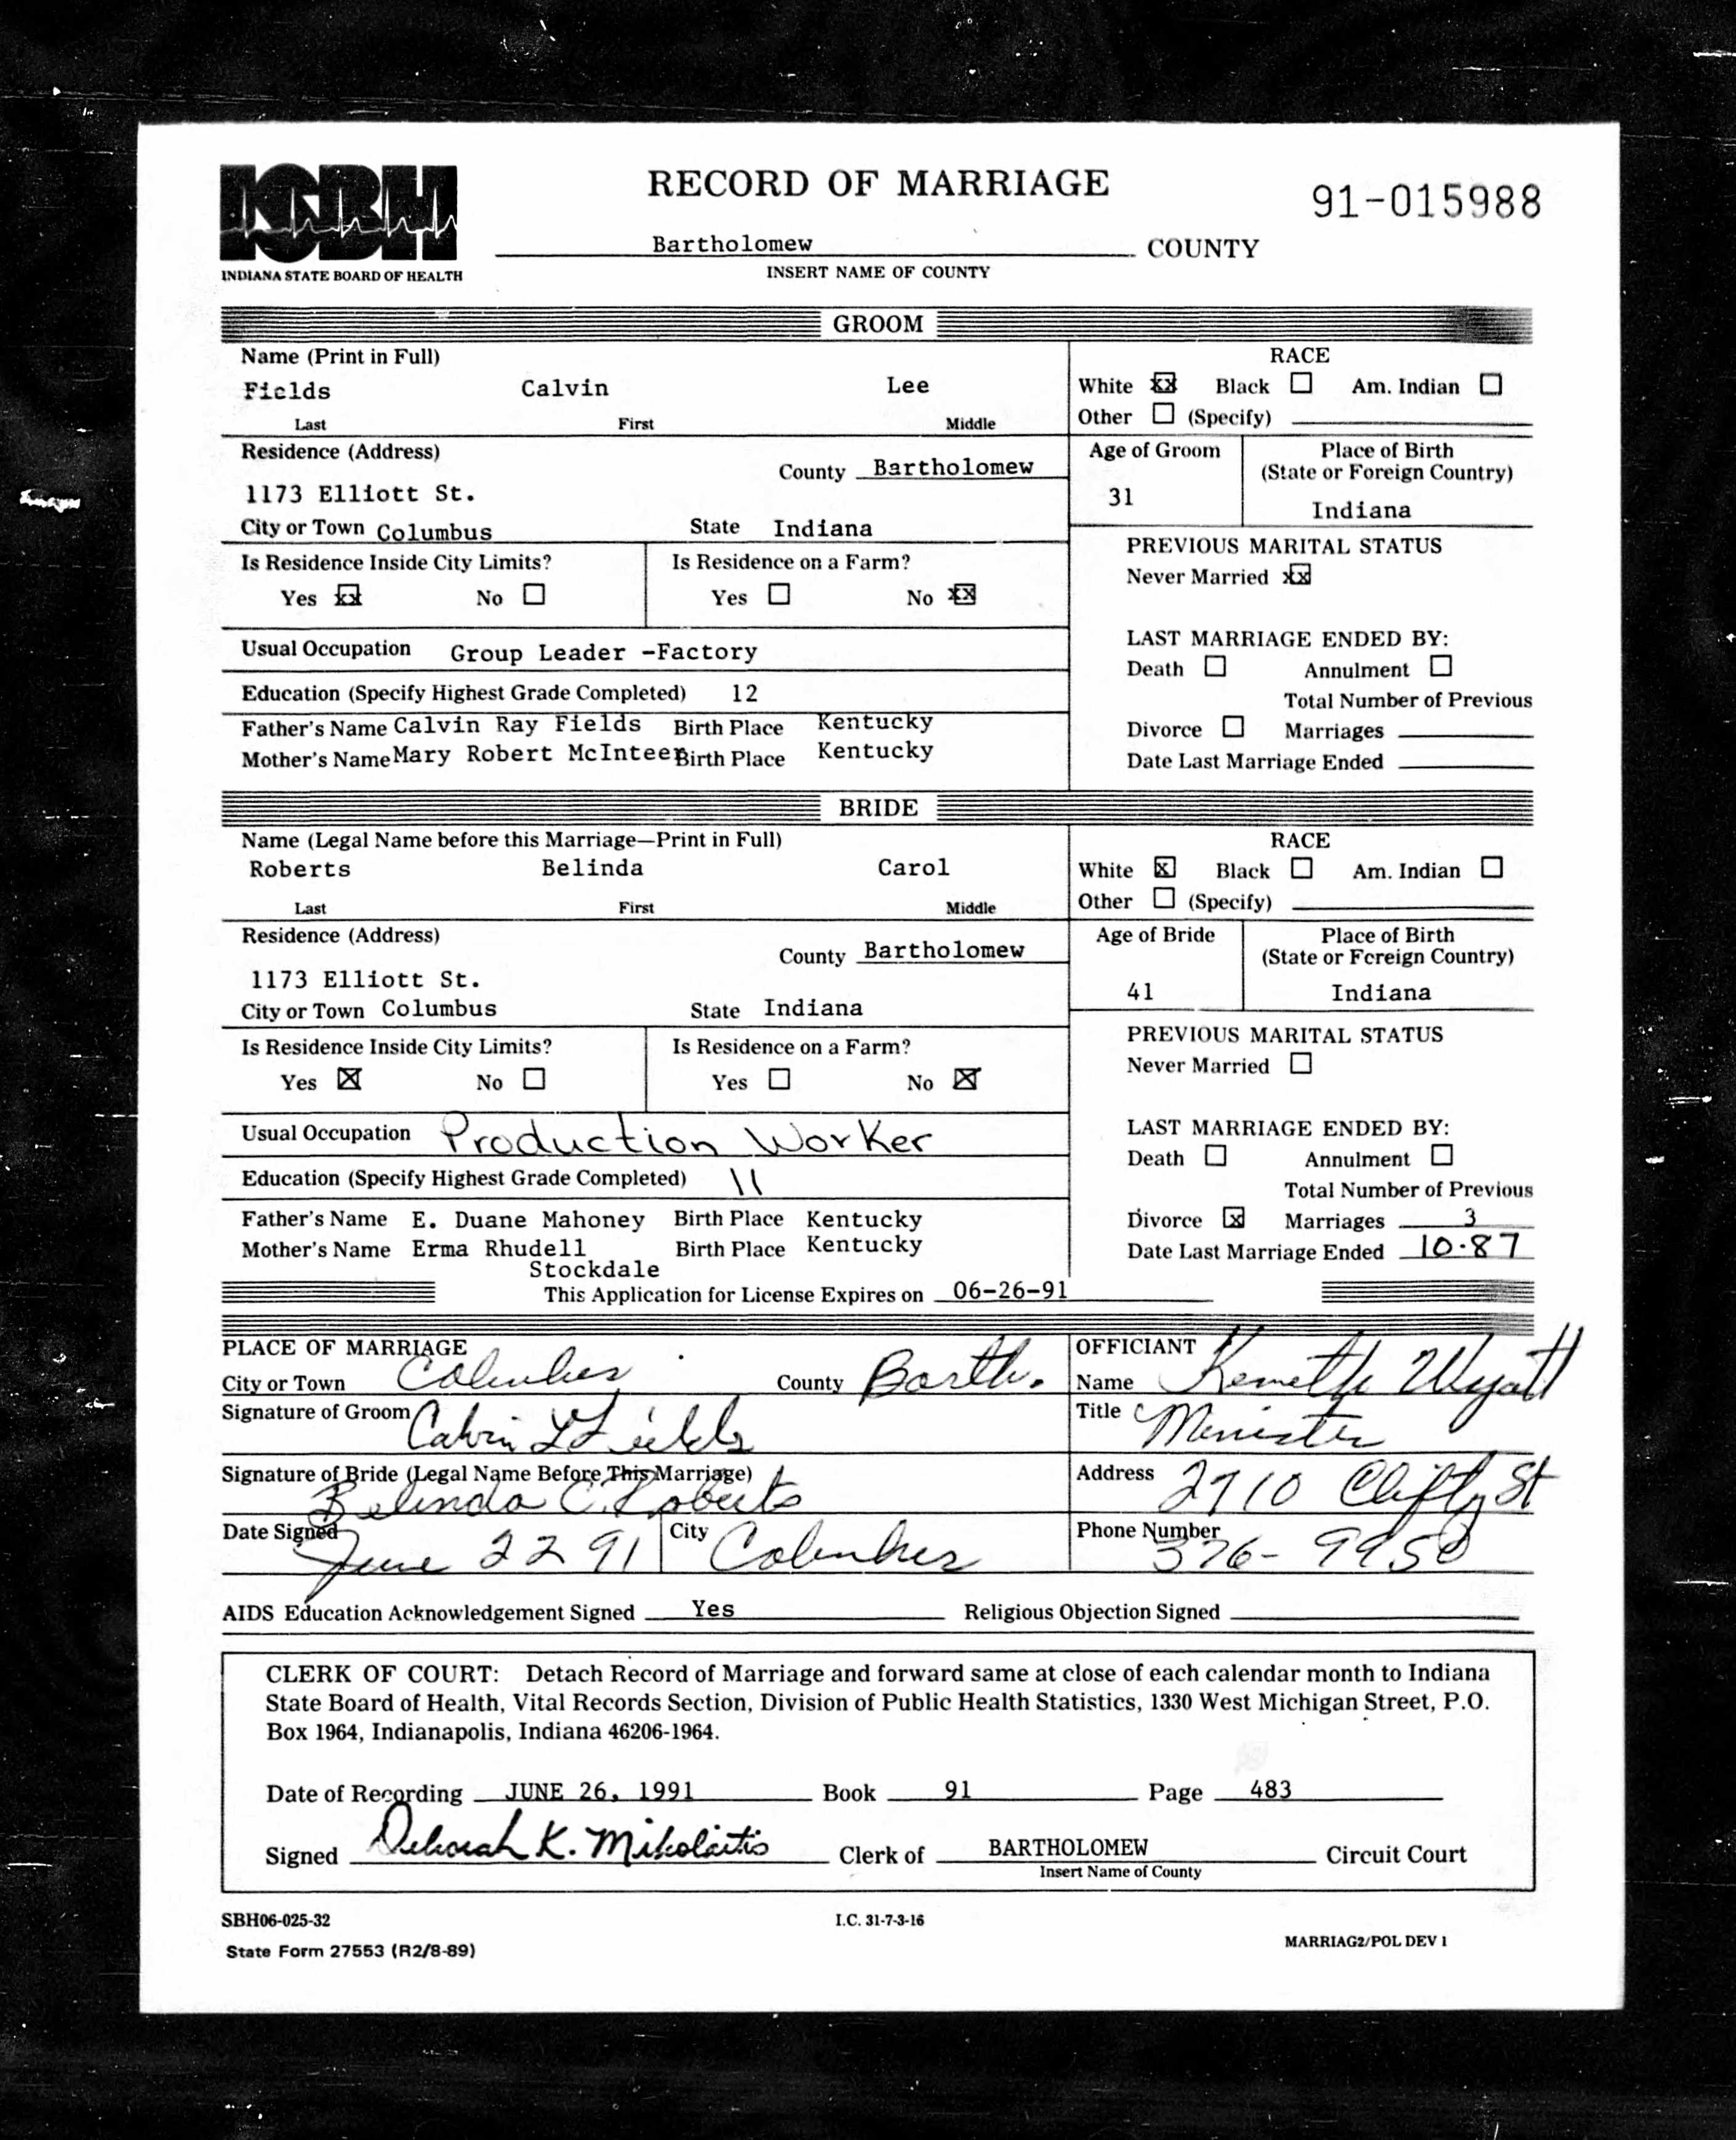 ISBH
INDIANA STATE BOARD OF HEALTH
RECORD OF MARRIAGE
91-015988
Bartholomew COUNTY
INSERT NAME OF COUNTY
GROOM
Name (Print in Full)
Fields Calvin Lee
Last First Middle
RACE
White XX Black Am. Indian
Other (Specify)
Residence (Address)
County Bartholomew
1173 Elliott St.
City or Town Columbus State Indiana
Age of Groom
31
Place of Birth
(State or Foreign Country)
Indiana
Is Residence Inside City Limits? Is Residence on a Farm?
Yes XX No Yes No XX
PREVIOUS MARITAL STATUS
Never Married XX
Usual Occupation Group Leader -Factory
Education (Specify Highest Grade Completed) 12
Father's Name Calvin Ray Fields Birth Place Kentucky
Mother's Name Mary Robert McInteer Birth Place Kentucky
LAST MARRIAGE ENDED BY:
Death Annulment
Total Number of Previous
Divorce Marriages
Date Last Marriage Ended
BRIDE
Name (Legal Name before this Marriage—Print in Full)
Roberts Belinda Carol
Last First Middle
RACE
White X Black Am. Indian
Other (Specify)
Residence (Address)
County Bartholomew
1173 Elliott St.
City or Town Columbus State Indiana
Age of Bride
41
Place of Birth
(State or Foreign Country)
Indiana
Is Residence Inside City Limits? Is Residence on a Farm?
Yes X No Yes No X
PREVIOUS MARITAL STATUS
Never Married
Usual Occupation Production Worker
Education (Specify Highest Grade Completed) 11
Father's Name E. Duane Mahoney Birth Place Kentucky
Mother's Name Erma Rhudell Birth Place Kentucky
Stockdale
LAST MARRIAGE ENDED BY:
Death Annulment
Total Number of Previous
Divorce X Marriages 3
Date Last Marriage Ended 10-87
This Application for License Expires on 06-26-91
PLACE OF MARRIAGE
City or Town Columbus County Barth.
Signature of Groom Calvin L Fields
Signature of Bride (Legal Name Before This Marriage)
Belinda C. Roberts
Date Signed June 22 91 City Columbus
OFFICIANT
Name Kenneth Wyatt
Title Minister
Address 2710 Clifty St
Phone Number
376-9950
AIDS Education Acknowledgement Signed Yes Religious Objection Signed
CLERK OF COURT: Detach Record of Marriage and forward same at close of each calendar month to Indiana
State Board of Health, Vital Records Section, Division of Public Health Statistics, 1330 West Michigan Street, P.O.
Box 1964, Indianapolis, Indiana 46206-1964.
Date of Recording JUNE 26, 1991 Book 91 Page 483
Signed Deborah K. Mikolaitis Clerk of BARTHOLOMEW Circuit Court
Insert Name of County
SBH06-025-32 I.C. 31-7-3-16
State Form 27553 (R2/8-89) MARRIAG2/POL DEV 1